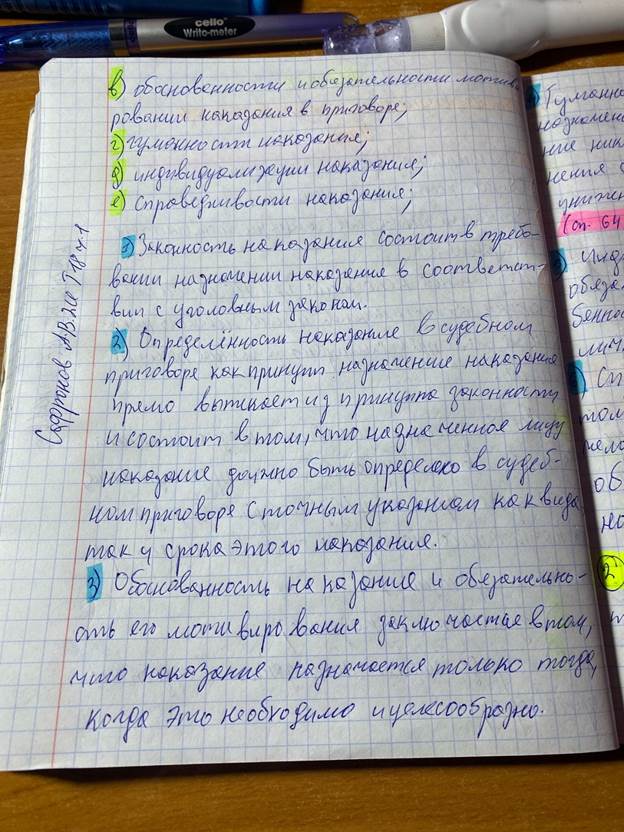 cello
Writo-meter
в) обоснованности и обязательности мотиви-
ровании наказания в приговоре;
г) гуманности наказания;
д) индивидуализации наказания;
е) справедливости наказания;
1) Законность наказания состоит в требо-
вании назначении наказание в соответст-
вии с уголовным законом.
2) Определённость наказание в судебном
приговоре как принцип назначение наказания
прямо вытикает из принципа законности
и состоит в том, что назначенное лицу
наказание должно быть определено в судеб-
ном приговоре с точным указанием как вида
так и срока этого наказания.
3) Обоснованность наказание и обязательно-
сть его мотивирования заключается в том,
что наказание назначается только тогда,
когда это необходимо и целесообразно.
Сафронов
Гуманно
назначени
ние ник
нения
унижен
(ст. 64
Инд
обяза
бенно
личн
Сп
том
чело
об
но
2